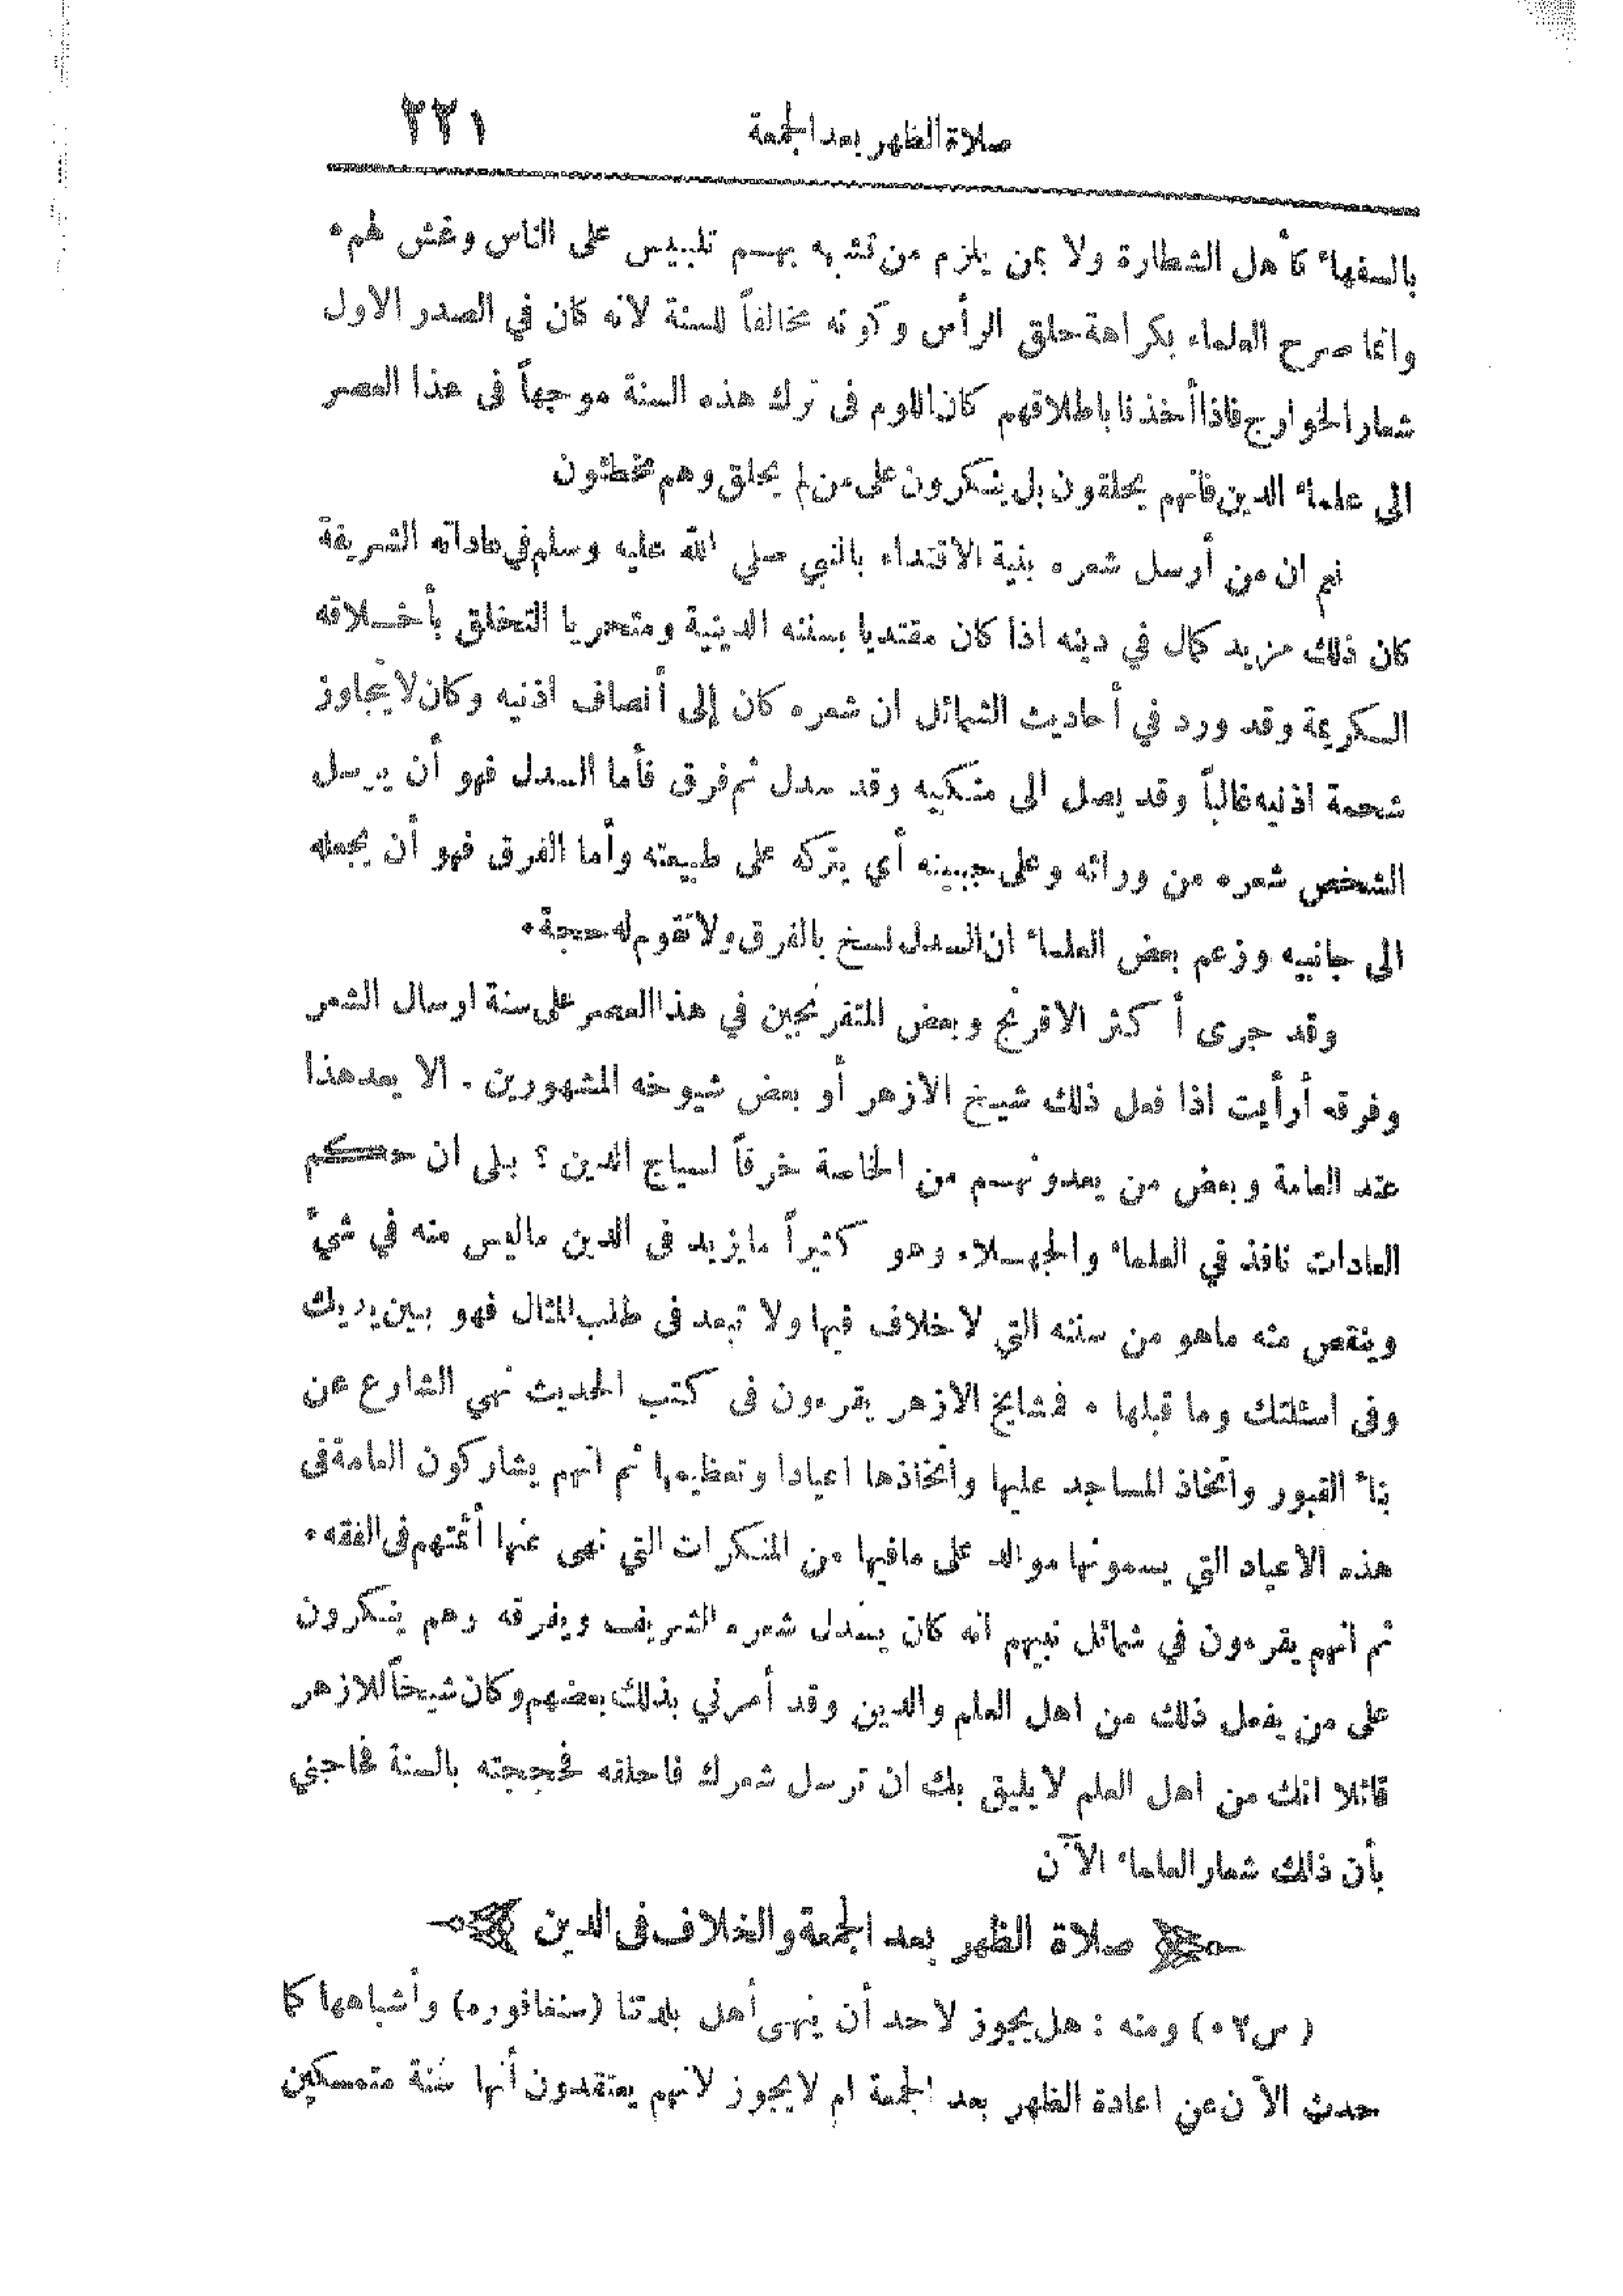 صلاة الظهر بعد الجمعة ٢٢١
بالسفهاء كأهل الشطارة ولا بمن يلزم من تشبهه بهم تلبيس على الناس وغش لهم.
وانما صرح العلماء بكراهة حلق الرأس وكونه مخالفاً للسنة لانه كان في الصدر الاول
شعار الخوارج فاذا أخذنا باطلاقهم كان اللوم فى ترك هذه السنة موجهاً فى هذا العصر
الى علماء الدين فانهم يحلقون بل ينكرون على من لم يحلق وهم مخطئون
نعم ان من أرسل شعره بنية الاقتداء بالنبي صلى الله عليه وسلم في عاداته الشريفة
كان ذلك مزيد كمال في دينه اذا كان مقتديا بسننه الدينية ومتحريا التخلق بأخلاقه
الكريمة وقد ورد في أحاديث الشمائل ان شعره كان إلى أنصاف اذنيه وكان لا يتجاوز
شحمة اذنيه غالباً وقد يصل الى منكبيه وقد سدل ثم فرق فأما السدل فهو أن يرسل
الشخص شعره من ورائه وعلى جبينه أي يتركه على طبيعته وأما الفرق فهو أن يجعله
الى جانبيه وزعم بعض العلماء ان السدل نسخ بالفرق ولا تقوم له حجة.
وقد جرى أكثر الافرنج وبعض المتفرنجين في هذا العصر على سنة ارسال الشعر
وفرقه أرأيت اذا فعل ذلك شيخ الازهر أو بعض شيوخه المشهورين. الا يعد هذا
عند العامة وبعض من يعدونهم من الخاصة خرقاً لسياج الدين؟ بلى ان حكم
العادات نافذ في العلماء والجهلاء وهو كثيراً ما يزيد فى الدين ما ليس منه في شيء
وينقص منه ماهو من سننه التي لا خلاف فيها ولا تبعد فى طلب المثال فهو بين يديك
وفى اسئلتك وما قبلها. فمشايخ الازهر يقرءون فى كتب الحديث نهي الشارع عن
بناء القبور واتخاذ المساجد عليها واتخاذها اعيادا وتعظيمها ثم انهم يشاركون العامة فى
هذه الاعياد التي يسمونها موالد على مافيها من المنكرات التي نهى عنها أئمتهم فى الفقه.
ثم انهم يقرءون في شمائل نبيهم انه كان يسدل شعره الشريف ويفرقه وهم ينكرون
على من يفعل ذلك من اهل العلم والدين وقد أمرني بذلك بعضهم وكان شيخاً للازهر
قائلا انك من اهل العلم لا يليق بك ان ترسل شعرك فاحلقه فحججته بالسنة فحاجني
بأن ذلك شعار العلماء الآن
صلاة الظهر بعد الجمعة والخلاف فى الدين
(س٢٠) ومنه: هل يجوز لاحد أن ينهى أهل بلدتنا (سنغافوره) وأشباهها كما
حدث الآن عن اعادة الظهر بعد الجمعة ام لا يجوز لانهم يعتقدون أنها سُنة متمسكين